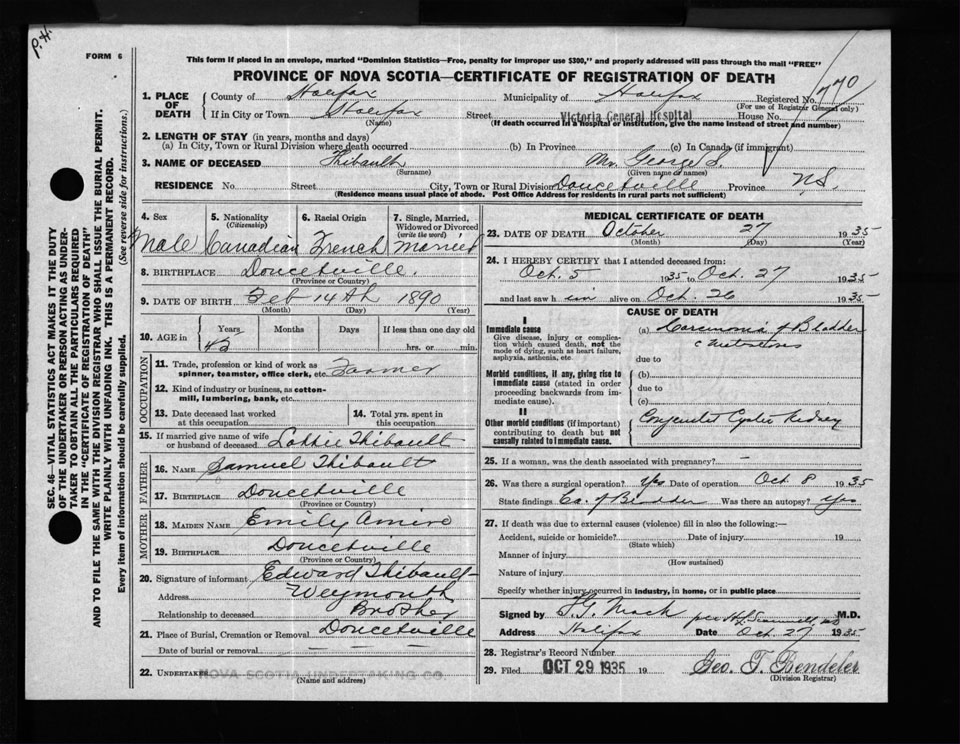 P.H.
FORM 6
This form if placed in an envelope, marked "Dominion Statistics—Free, penalty for improper use $300," and properly addressed will pass through the mail "FREE"
PROVINCE OF NOVA SCOTIA—CERTIFICATE OF REGISTRATION OF DEATH
SEC. 46—VITAL STATISTICS ACT MAKES IT THE DUTY
OF THE UNDERTAKER OR PERSON ACTING AS UNDER-
TAKER TO OBTAIN ALL THE PARTICULARS REQUIRED
IN THE "CERTIFICATE OF REGISTRATION OF DEATH"
AND TO FILE THE SAME WITH THE DIVISION REGISTRAR WHO SHALL ISSUE THE BURIAL PERMIT.
WRITE PLAINLY WITH UNFADING INK. THIS IS A PERMANENT RECORD.
Every item of information should be carefully supplied. (See reverse side for instructions.)
1. PLACE OF DEATH County of Halifax Municipality of Halifax Registered No. 1770
(For use of Registrar General only)
If in City or Town Halifax Street Victoria General Hospital House No.
(Name) (If death occurred in a hospital or institution, give the name instead of street and number)
2. LENGTH OF STAY (in years, months and days)
(a) In City, Town or Rural Division where death occurred (b) In Province (c) In Canada (if immigrant)
3. NAME OF DECEASED Thibault Mr. George S.
(Surname) (Given name or names)
RESIDENCE No. Street City, Town or Rural Division Doucetville Province N.S.
(Residence means usual place of abode. Post Office Address for residents in rural parts not sufficient)
4. Sex 5. Nationality (Citizenship) 6. Racial Origin 7. Single, Married, Widowed or Divorced (write the word)
Male Canadian French Married
8. BIRTHPLACE Doucetville.
(Province or Country)
9. DATE OF BIRTH Feb 14th 1890
(Month) (Day) (Year)
10. AGE in Years Months Days If less than one day old
hrs. or min.
OCCUPATION
11. Trade, profession or kind of work as spinner, teamster, office clerk, etc. Farmer
12. Kind of industry or business, as cotton-mill, lumbering, bank, etc.
13. Date deceased last worked at this occupation 14. Total yrs. spent in this occupation
15. If married give name of wife or husband of deceased Lottie Thibault
FATHER
16. NAME Samuel Thibault
17. BIRTHPLACE Doucetville
(Province or Country)
MOTHER
18. MAIDEN NAME Emily Amiro
19. BIRTHPLACE Doucetville
(Province or Country)
20. Signature of informant Edward Thibault
Address Weymouth
Relationship to deceased Brother
21. Place of Burial, Cremation or Removal Doucetville
Date of burial or removal — — —
22. UNDERTAKER NOVA SCOTIA UNDERTAKING CO.
(Name and address)
MEDICAL CERTIFICATE OF DEATH
23. DATE OF DEATH October 27 1935
(Month) (Day) (Year)
24. I HEREBY CERTIFY that I attended deceased from:
Oct. 5 1935 to Oct. 27 1935
and last saw h im alive on Oct. 26 1935
CAUSE OF DEATH
I
Immediate cause (a) Carcinoma of Bladder
Give disease, injury or complication which caused death, not the mode of dying, such as heart failure, asphyxia, asthenia, etc. c metastases
due to
Morbid conditions, if any, giving rise to immediate cause (stated in order proceeding backwards from immediate cause). (b)
due to
(c)
II
Other morbid conditions (if important) contributing to death but not causally related to immediate cause. Cystic Kidney
25. If a woman, was the death associated with pregnancy? —
26. Was there a surgical operation? Yes Date of operation Oct 8 1935
State findings Ca. of Bladder Was there an autopsy? Yes
27. If death was due to external causes (violence) fill in also the following:
Accident, suicide or homicide? Date of injury 19
(State which)
Manner of injury
(How sustained)
Nature of injury
Specify whether injury occurred in industry, in home, or in public place
Signed by F.G. Mack M.D.
Address Halifax Date Oct. 27 1935
28. Registrar's Record Number
29. Filed OCT 29 1935 19 Geo. T. Bendeler
(Division Registrar)